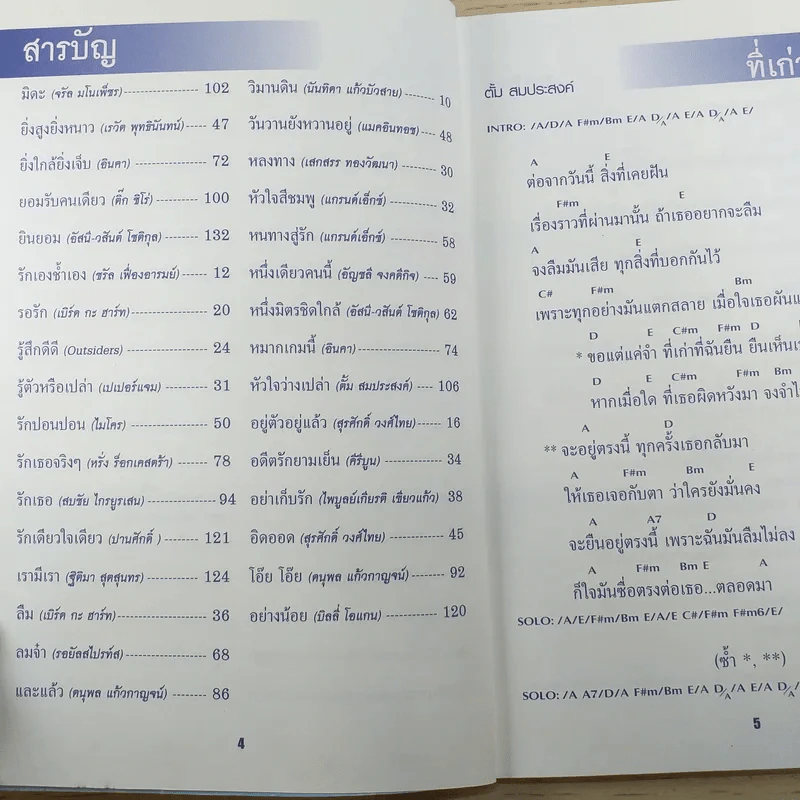 สารบัญ
มิดะ (จรัล มโนเพ็ชร) ---------- 102
ยิ่งสูงยิ่งหนาว (เรวัต พุทธินันทน์) ---- 47
ยิ่งใกล้ยิ่งเจ็บ (อินคา) ---------- 72
ยอมรับคนเดียว (ติ๊ก ชิโร่) ------- 100
ยินยอม (อัสนี-วสันต์ โชติกุล) ------- 132
รักเองช้ำเอง (ชรัล เฟื่องอารมย์) ---- 12
รอรัก (เบิร์ด กะ ฮาร์ท) ---------- 20
รู้สึกดีดี (Outsiders) ---------- 24
รู้ตัวหรือเปล่า (เปเปอร์แจม) ------- 31
รักปอนปอน (ไมโคร) ---------- 50
รักเธอจริงๆ (หรั่ง ร็อกเคสตร้า) ----- 78
รักเธอ (สบชัย ไกรยูรเสน) ---------- 94
รักเดียวใจเดียว (ปานศักดิ์ ) -------- 121
เรามีเรา (ฐิติมา สุตสุนทร) ---------- 124
ลืม (เบิร์ด กะ ฮาร์ท) ---------- 36
ลมจ๋า (รอยัลสไปรท์ส) ---------- 68
และแล้ว (ดนุพล แก้วกาญจน์) -------- 86
วิมานดิน (นันทิดา แก้วบัวสาย) ------- 10
วันวานยังหวานอยู่ (แมคอินทอช) ---- 48
หลงทาง (เสกสรร ทองวัฒนา) ------- 30
หัวใจสีชมพู (แกรนด์เอ็กซ์) ---------- 32
หนทางสู่รัก (แกรนด์เอ็กซ์) ---------- 58
หนึ่งเดียวคนนี้ (อัญชลี จงคดีกิจ) ----- 59
หนึ่งมิตรชิดใกล้ (อัสนี-วสันต์ โชติกุล) 62
หมากเกมนี้ (อินคา) ---------- 74
หัวใจว่างเปล่า (ตั้ม สมประสงค์) ---- 106
อยู่ตัวอยู่แล้ว (สุรศักดิ์ วงศ์ไทย) ------ 16
อดีตรักยามเย็น (คีรีบูน) ---------- 34
อย่าเก็บรัก (ไพบูลย์เกียรติ เขียวแก้ว) 38
อิดออด (สุรศักดิ์ วงศ์ไทย) ---------- 45
โอ๊ย โอ๊ย (ดนุพล แก้วกาญจน์) ------- 92
อย่างน้อย (บิลลี่ โอแกน) ---------- 120
4
ที่เก่า
ตั้ม สมประสงค์
INTRO: /A/D/A F#m/Bm E/A D/A/A E/A D/A/A E/
A E
ต่อจากวันนี้ สิ่งที่เคยฝัน
F#m E
เรื่องราวที่ผ่านมานั้น ถ้าเธออยากจะลืม
A E
จงลืมมันเสีย ทุกสิ่งที่บอกกันไว้
C# F#m Bm
เพราะทุกอย่างมันแตกสลาย เมื่อใจเธอผันแ
D E C#m F#m D
* ขอแต่แค่จำ ที่เก่าที่ฉันยืน ยืนเห็น
D E C#m F#m Bm
หากเมื่อใด ที่เธอผิดหวังมา จงจำไ
A D
** จะอยู่ตรงนี้ ทุกครั้งเธอกลับมา
A F#m Bm E
ให้เธอเจอกับตา ว่าใครยังมั่นคง
A A7 D
จะยืนอยู่ตรงนี้ เพราะฉันมันลืมไม่ลง
A F#m Bm E A
ก็ใจมันซื่อตรงต่อเธอ...ตลอดมา
SOLO: /A/E/F#m/Bm E/A/E C#/F#m F#m6/E/
(ซ้ำ *, **)
SOLO: /A A7/D/A F#m/Bm E/A D/A/A E/A D/A/
5